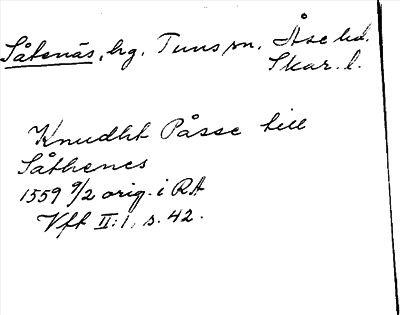 Såtenäs, hg. Tuns sn. Åse hd.
Skar. l.
Knudht Påsse till
Såthenes
1559 9/2 orig. i RA
Vft II:1, s. 42.